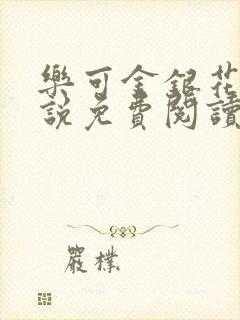 樂可金銀花
說免費閱讀
嚴樸